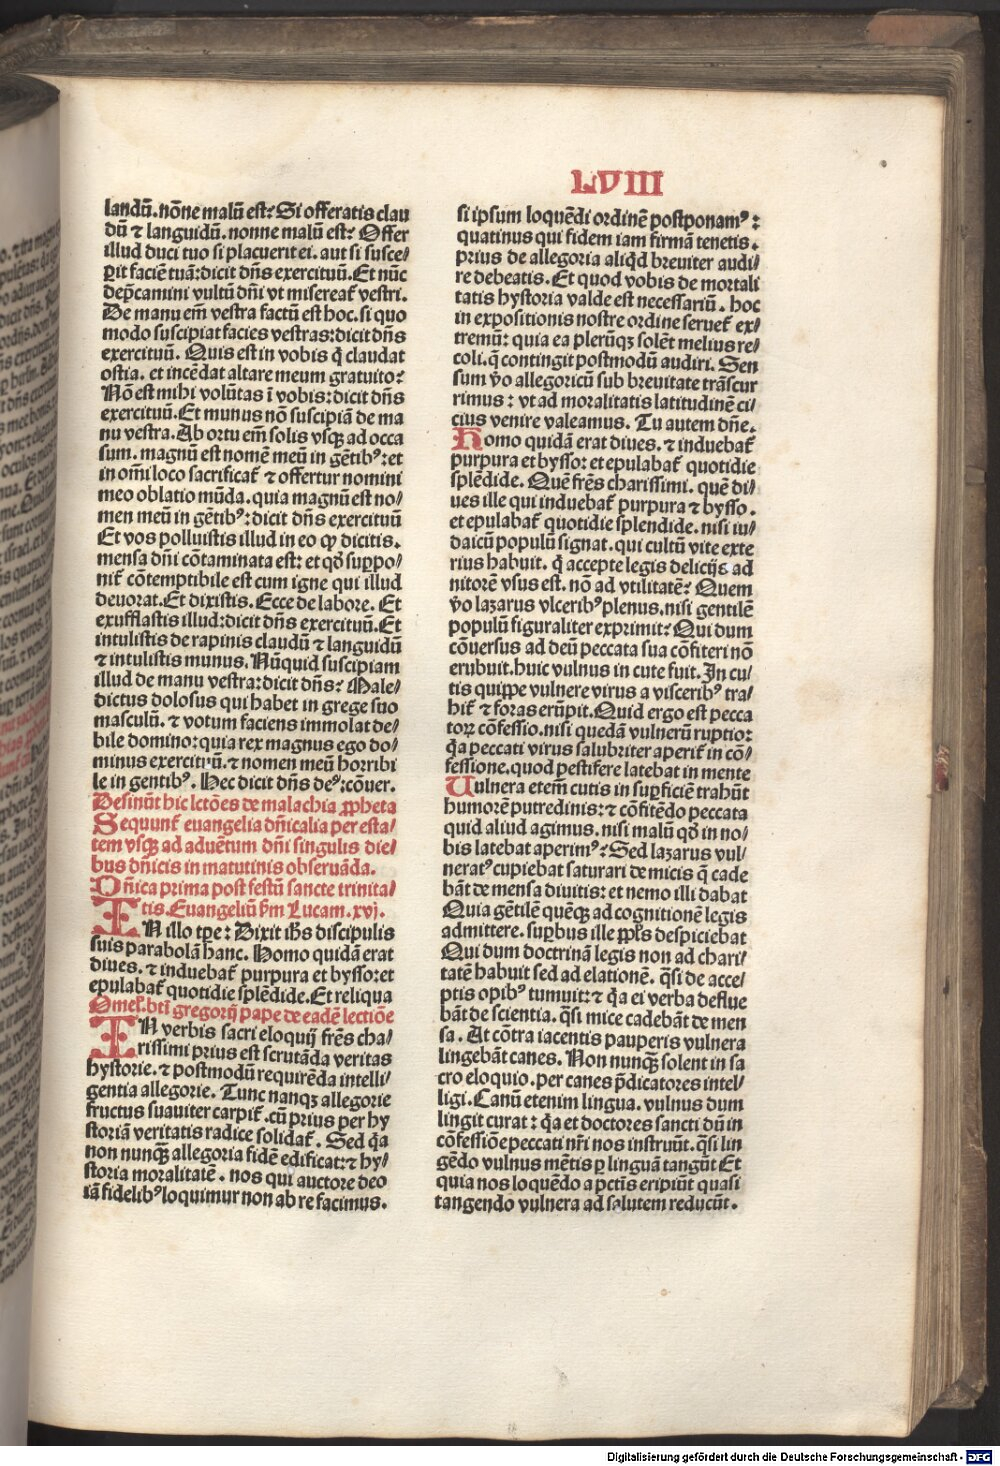 LVIII
landū. nōne malū est? Si offeratis clau
dū ⁊ languidū. nonne malū est? Offer
illud duci tuo si placuerit ei. aut si susce/
ꝑit faciē tuā: dicit dn̄s exercituū. Et nūc
dep̄camini vultū dn̄i vt misereat᷑ vestri.
De manu em̄ vestra factū est hoc. si quo
modo suscipiat facies vestras: dicit dn̄s
exercituū. Quis est in vobis q̇ claudat
ostia. et incēdat altare meum gratuito?
Nō est mihi volūtas ī vobis: dicit dn̄s
exercituū. Et munus nō suscipiā de ma
nu vestra. Ab ortu em̄ solis vsqꝫ ad occa
sum. magnū est nomē meū in gētibꝰ: et
in om̄i loco sacrificat᷑ ⁊ offertur nomini
meo oblatio mūda. quia magnū est no/
men meū in gētibꝰ: dicit dn̄s exercituū
Et vos polluistis illud in eo ꝙ dicitis.
mensa dn̄i cōtaminata est: et qd̄ suppo/
nit᷑ cōtemptibile est cum igne qui illud
deuorat. Et dixistis. Ecce de labore. Et
exufflastis illud: dicit dn̄s exercituū. Et
intulistis de rapinis claudū ⁊ languidū
⁊ intulistis munus. Nūquid suscipiam
illud de manu vestra: dicit dn̄s? Male/
dictus dolosus qui habet in grege suo
masculū. ⁊ votum faciens immolat de/
bile domino: quia rex magnus ego do/
minus exercituū. ⁊ nomen meū horribi
le in gentibꝰ. Hec dicit dn̄s deꝰ: cōuer.
Desinūt hic lctōes de malachia ꝓpheta
Sequunt᷑ euangelia dn̄icalia per esta/
tem vsqꝫ ad aduētum dn̄i singulis die/
bus dn̄icis in matutinis obseruāda.
Dn̄ica prima post festū sancte trinita/
tis. Euangeliū ẜm Lucam. xvj.
IN illo tꝑe: Dixit ih̄s discipulis
suis parabolā hanc. Homo quidā erat
diues. ⁊ induebat᷑ purpura et bysso: et
epulabat᷑ quotidie splēdide. Et reliqua
Omel. bt̄i gregorij pape de eadē lectiōe
IN verbis sacri eloquij fr̄es cha/
rissimi prius est scrutāda veritas
hystorie. ⁊ postmodū requirēda intelli/
gentia allegorie. Tunc nanqꝫ allegorie
fructus suauiter carpit᷑. cū prius per hy
storiā veritatis radice solidat᷑. Sed q̇a
non nunqꝫ allegoria fidē edificat: ⁊ hy/
storia moralitatē. nos qui auctore deo
iā fidelibꝰ loquimur non ab re facimus.
si ipsum loquēdi ordinē postponamꝰ:
quatinus qui fidem iam firmā tenetis.
prius de allegoria aliqd̄ breuiter audi/
re debeatis. Et quod vobis de mortali
tatis hystoria valde est necessariū. hoc
in expositionis nostre ordine seruet᷑ ex/
tremū: quia ea plerūqꝫ solēt melius re/
coli. q̄ contingit postmodū audiri. Sen
sum ꝟo allegoricū sub breuitate trāscur
rimus: vt ad moralitatis latitudinē ci/
cius venire valeamus. Tu autem dn̄e.
Homo quidā erat diues. ⁊ induebat᷑
purpura et bysso: et epulabat᷑ quotidie
splēdide. Quē fr̄es charissimi. quē di/
ues ille qui induebat᷑ purpura ⁊ bysso.
et epulabat᷑ quotidie splendide. nisi iu/
daicū populū signat. qui cultū vite exte
rius habuit. q̇ accepte legis delicijs ad
nitorē vsus est. nō ad vtilitatē? Quem
ꝟo lazarus vlceribꝰ plenus. nisi gentilē
populū figuraliter exprimit? Qui dum
cōuersus ad deū peccata sua cōfiteri nō
erubuit. huic vulnus in cute fuit. In cu/
tis quippe vulnere virus a visceribꝰ tra/
hit᷑ ⁊ foras erūpit. Quid ergo est pecca
toꝝ cōfessio. nisi quedā vulnerū ruptio:
q̇a peccati virus salubriter aperit᷑ in cō/
fessione. quod pestifere latebat in mente
Vulnera etem̄ cutis in suꝑficiē trahūt
humorē putredinis: ⁊ cōfitēdo peccata
quid aliud agimus. nisi malū qd̄ in no/
bis latebat aperimꝰ? Sed lazarus vul/
neratꝰ cupiebat saturari de micis q̄ cade
bāt de mensa diuitis: et nemo illi dabat
Quia gētilē quēqꝫ ad cognitionē legis
admittere. suꝑbus ille ppl̄s despiciebat
Qui dum doctrinā legis non ad chari/
tatē habuit sed ad elationē. q̄si de acce/
ptis opibꝰ tumuit: ⁊ q̇a ei verba deflue
bāt de scientia. q̄si mice cadebāt de men
sa. At cōtra iacentis pauperis vulnera
lingebāt canes. Non nunqꝫ solent in sa
cro eloquio. per canes p̄dicatores intel/
ligi. Canū etenim lingua. vulnus dum
lingit curat: q̇a et doctores sancti dū in
cōfessiōe peccati nr̄i nos instruūt. q̄si lin
gēdo vulnus mētis ꝑ linguā tangūt Et
quia nos loquēdo a pctīs eripiūt quasi
tangendo vulnera ad salutem reducūt.
Digitalisierung gefördert durch die Deutsche Forschungsgemeinschaft - DFG